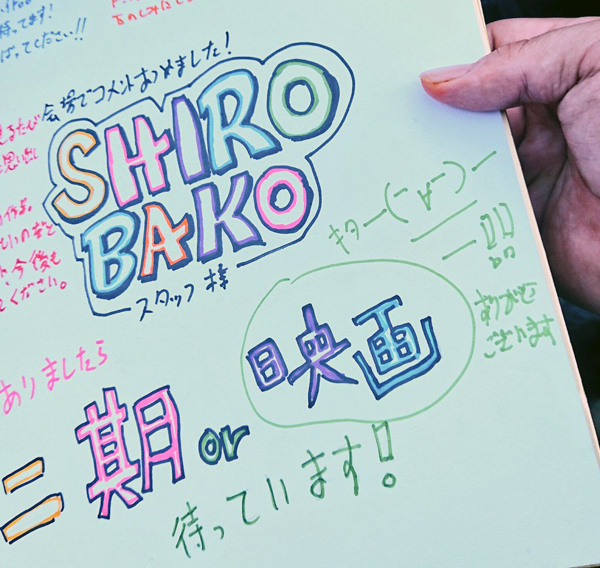 待ってます!
ばってください!!
会場でコメントあつめました!
SHIRO
BAKO
スタッフ様
見るたび
思い出
今後も
ください。
キター(￣∀￣)ー
ー!!!
ありがとう
ございます
ありましたら
二期or映画
待っています!